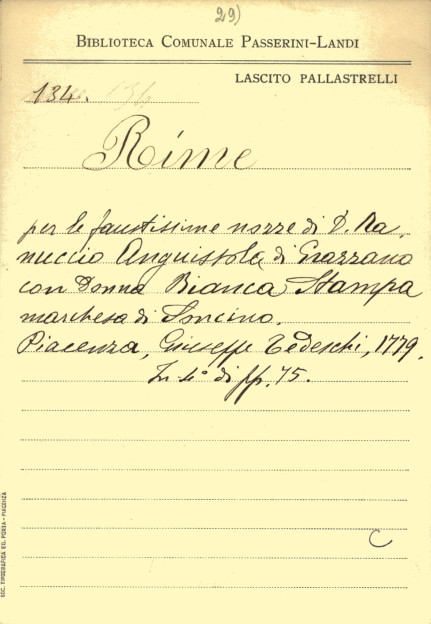 29)
BIBLIOTECA COMUNALE PASSERINI-LANDI
LASCITO PALLASTRELLI
134. 134
Rime
per le faustissime nozze di D. Ra,
nuccio Anguissola di Grazzano
con Donna Bianca Stampa
marchesa di Soncino.
Piacenza, Giuseppe Tedeschi, 1779.
In 4° di pp. 75.
C
SOC. TIPOGRAFICA ED. PORTA - PIACENZA